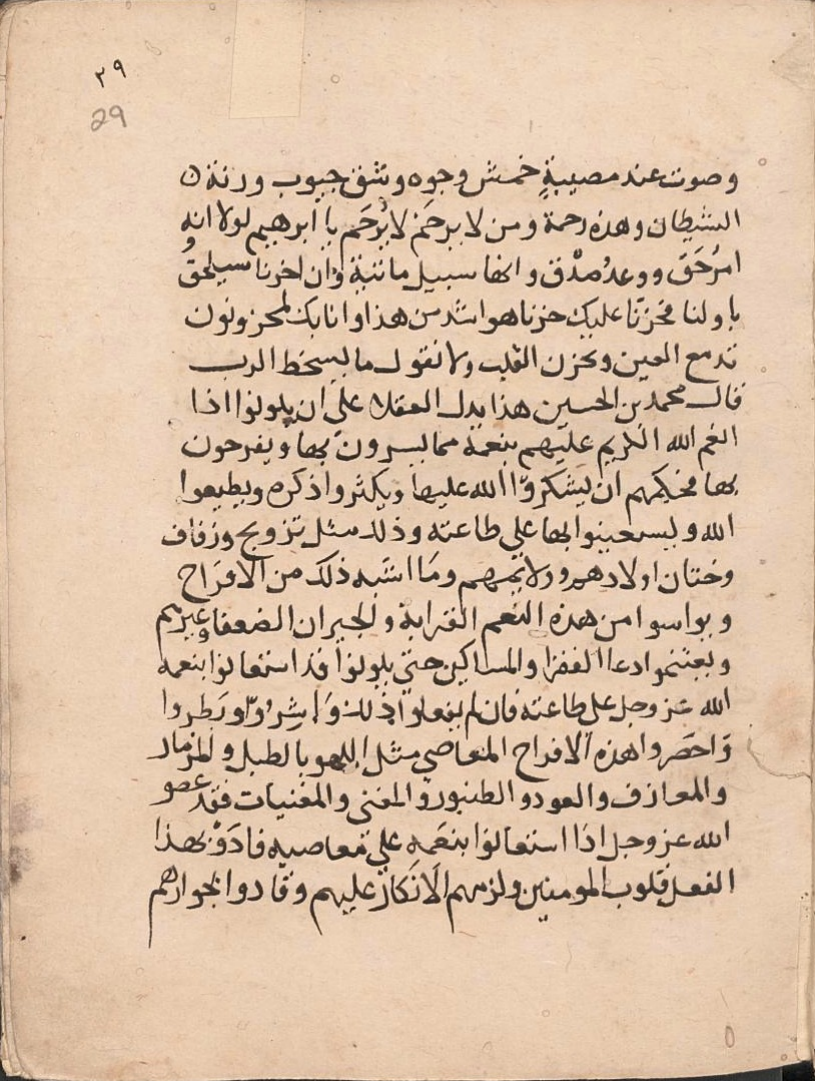 ٢٩
29
وصوت عند مصيبةٍ خمش وجوه وشق جيوب ورنة ن
الشيطان وهذه رحمة ومن لا يرحَم لا يُرحَم يا ابرهيم لولا انه
امرُحَق ووعدُ صدْق وانها سبيل ماتية وان اخرنا سيلحقُ
باولنا لحزنّا عليك حزنا هو اشد من هذا وانا بك لمحزونون
تدمع العين ويحزن القلب ولا نقول ما يسخط الرب
قال محمد بن الحسين هذا يدل العقلا على ان يلولوا اذا
انعم الله الكريم عليهم بنعمة مما يسرون بها ويفرحون
بها فحكمهم ان يشكروا الله عليها ويكثروا ذكره ويطيعوا
الله وليستعينوا بها علي طاعته وذلك مثل تزويج وزفاف
وختان اولادهم وولايمهم وما اشبه ذلك من الافراح
ويواسوا من هذه النعم القرابة والجيران الضعفا وغيرهم
ويغتنموا دعا الفقرا والمساكين حتي يلولوا قد استعانوا بنعمه
الله عز وجل علي طاعته فان لم يفعلوا ذلك وَاشِرُوا وبَطروا
وَاحضروا هذه الافراح المعاصي مثل اللهو بالطبل والمزمار
والمعازف والعود والطنبور والمغني والمغنيات فقد عصو
الله عز وجل اذا استعانوا بنعَمه علي معاصيه فاذَوْ بهذا
الفعل قلوب المومنين ولزمهم الانكار عليهم وتاذوا بجوارهم